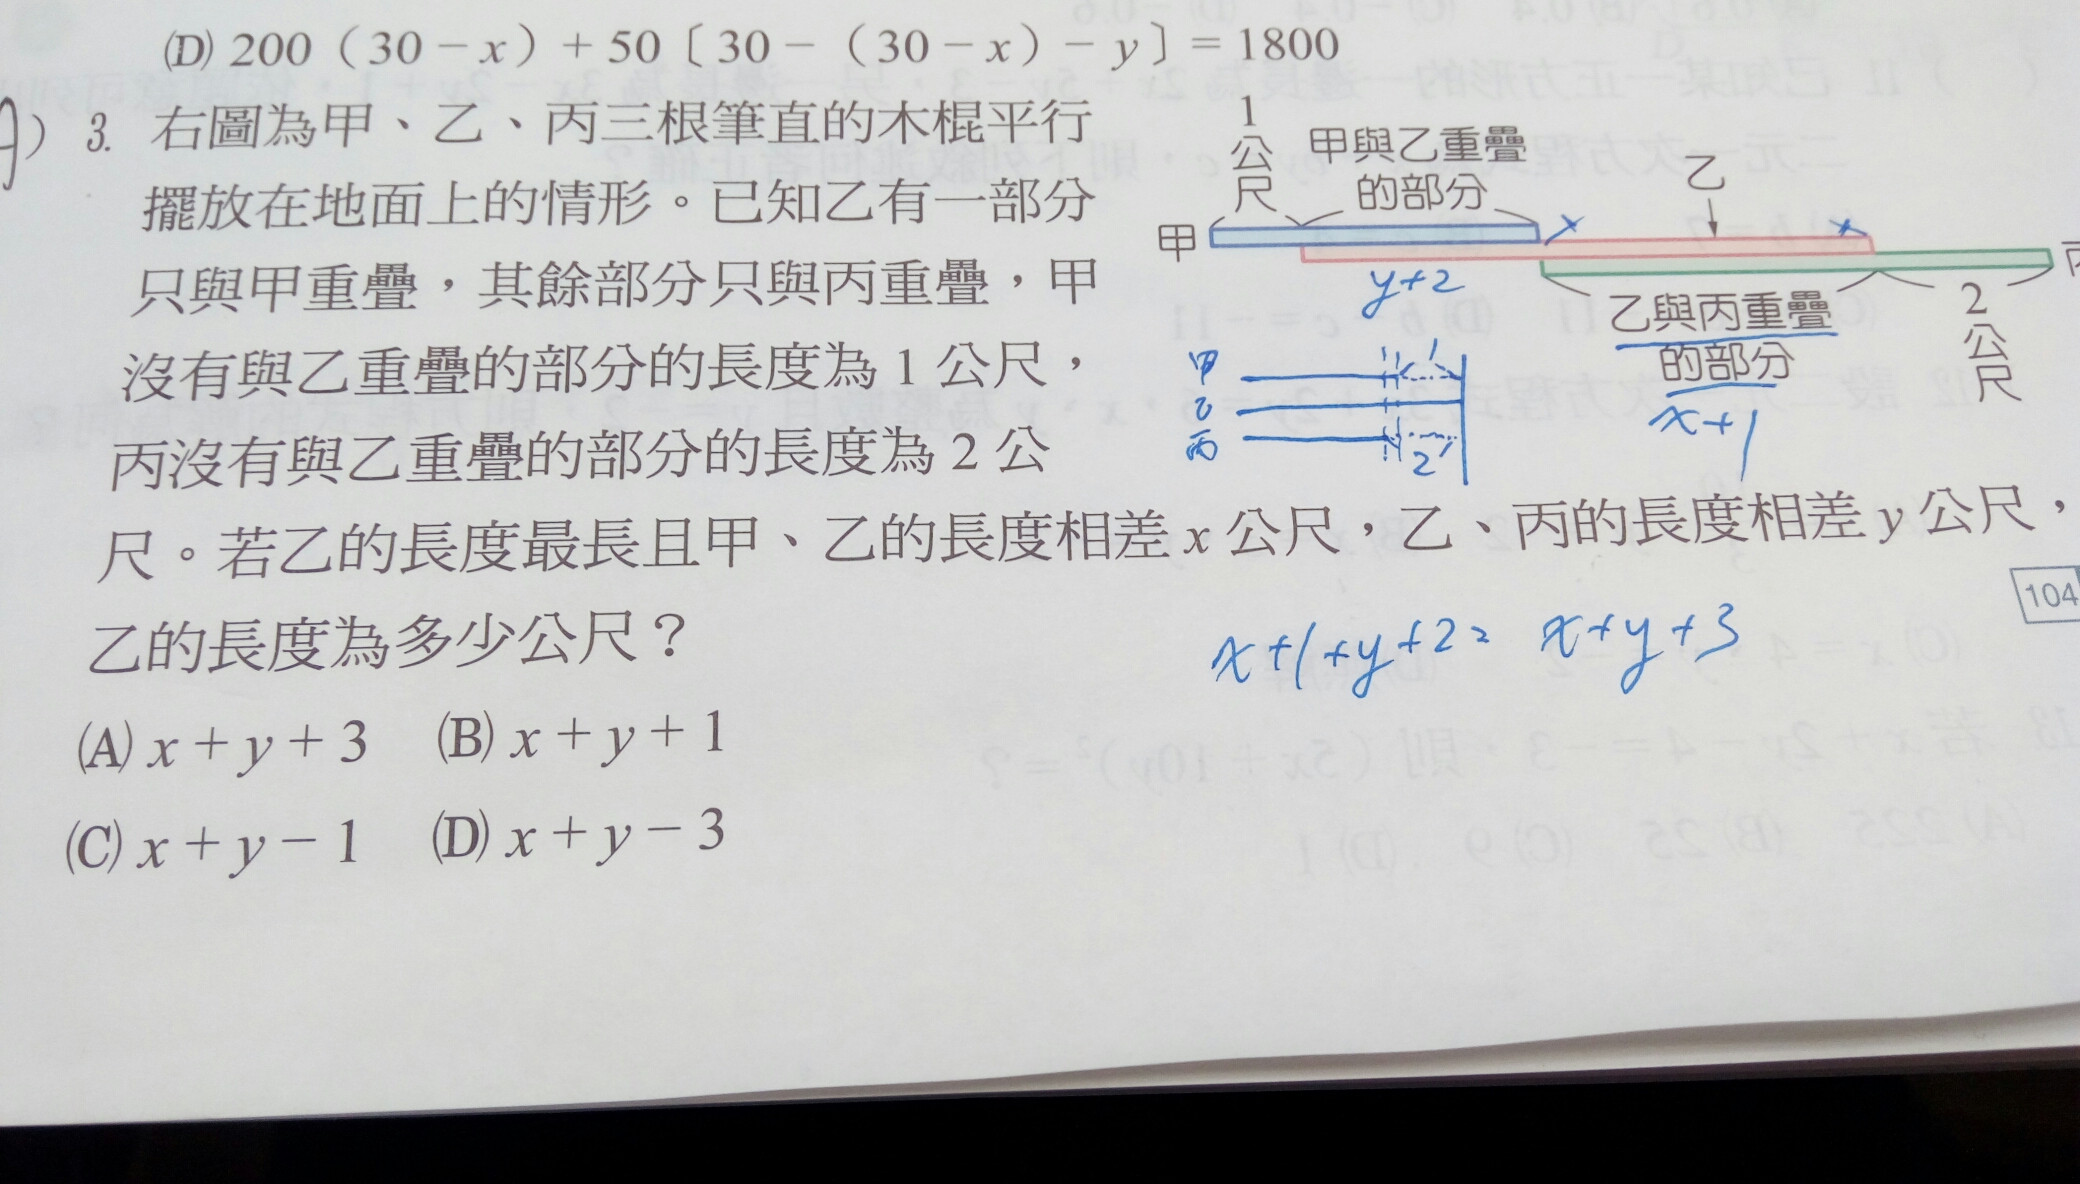 (D) 200（30－x）＋50〔30－（30－x）－y〕＝1800
) 3. 右圖為甲、乙、丙三根筆直的木棍平行
擺放在地面上的情形。已知乙有一部分
只與甲重疊，其餘部分只與丙重疊，甲
沒有與乙重疊的部分的長度為 1 公尺，
丙沒有與乙重疊的部分的長度為 2 公
尺。若乙的長度最長且甲、乙的長度相差 x 公尺，乙、丙的長度相差 y 公尺，
乙的長度為多少公尺？
(A) x＋y＋3 (B) x＋y＋1
(C) x＋y－1 (D) x＋y－3
1
公
尺
甲與乙重疊
的部分
乙
甲
x
x
y+2
乙與丙重疊
的部分
x+1
2
公
尺
甲
1
乙
丙
2
104
x+1+y+2= x+y+3